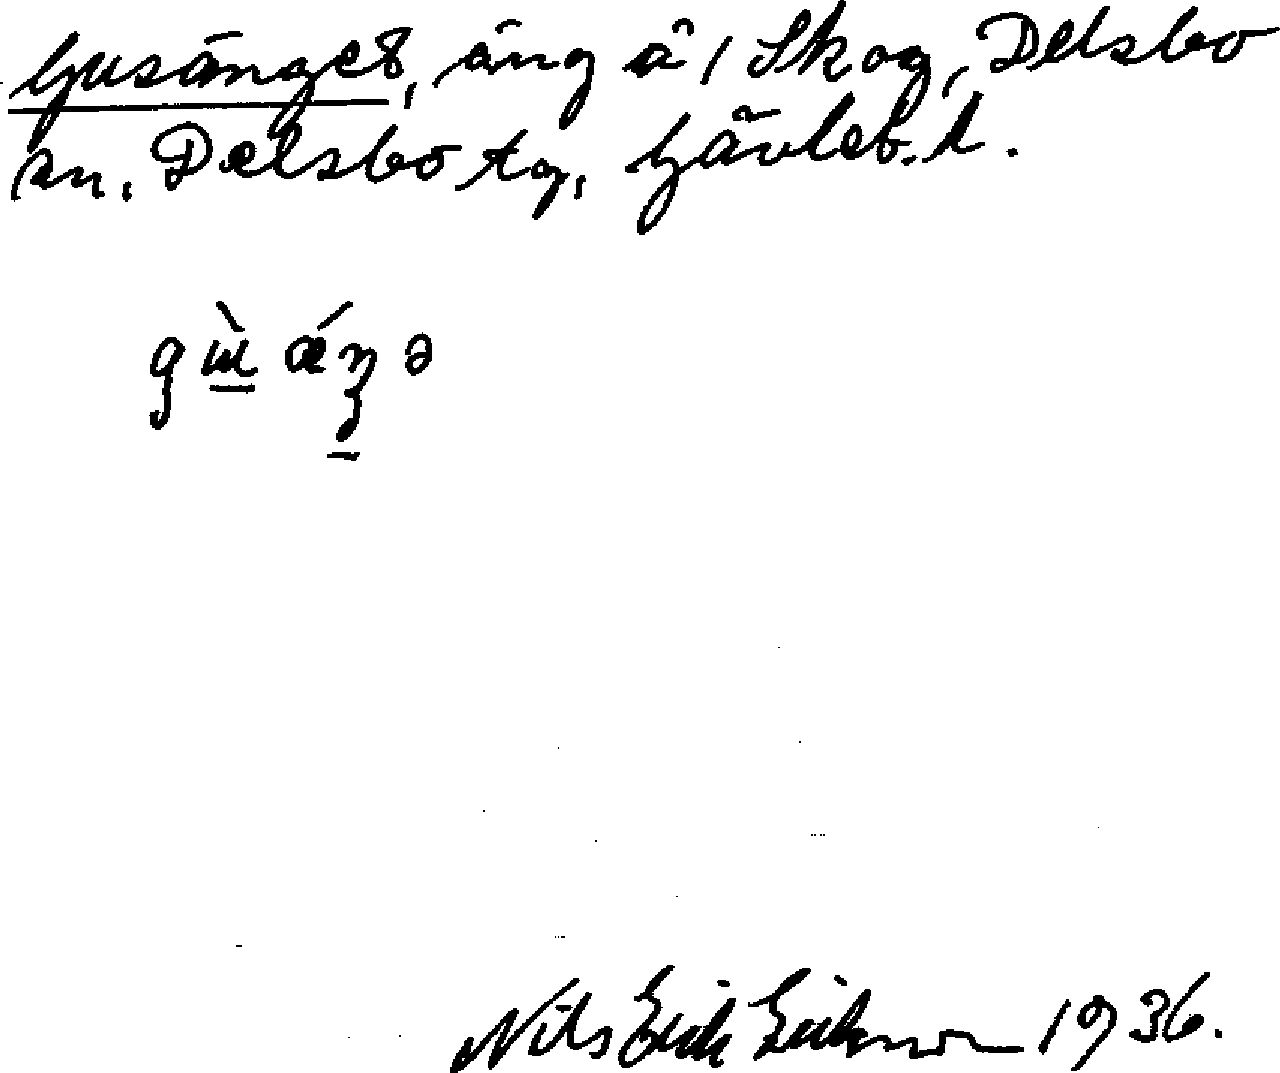 Gusänget, äng å 1 Skog, Delsbo
sn. Delsbo tg, Gävleb. l.
Nils Erik Eriksson 1936.